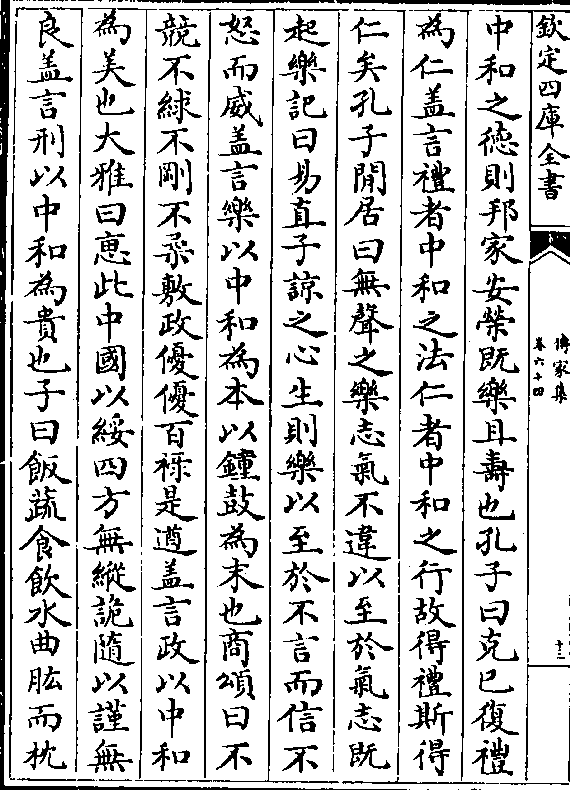 欽定四庫全書
傳家集
卷六十四
十三
中和之德則邦家安榮既樂且壽也孔子曰克已復禮
為仁盖言禮者中和之法仁者中和之行故得禮斯得
仁矣孔子閒居曰無聲之樂志氣不違以至於氣志既
起樂記曰易直子諒之心生則樂以至於不言而信不
怒而威盖言樂以中和為本以鐘鼓為末也商頌曰不
競不絿不剛不柔敷政優優百禄是遒盖言政以中和
為美也大雅曰恵此中國以綏四方無縱詭隨以謹無
良盖言刑以中和為貴也子曰飯蔬食飲水曲肱而枕